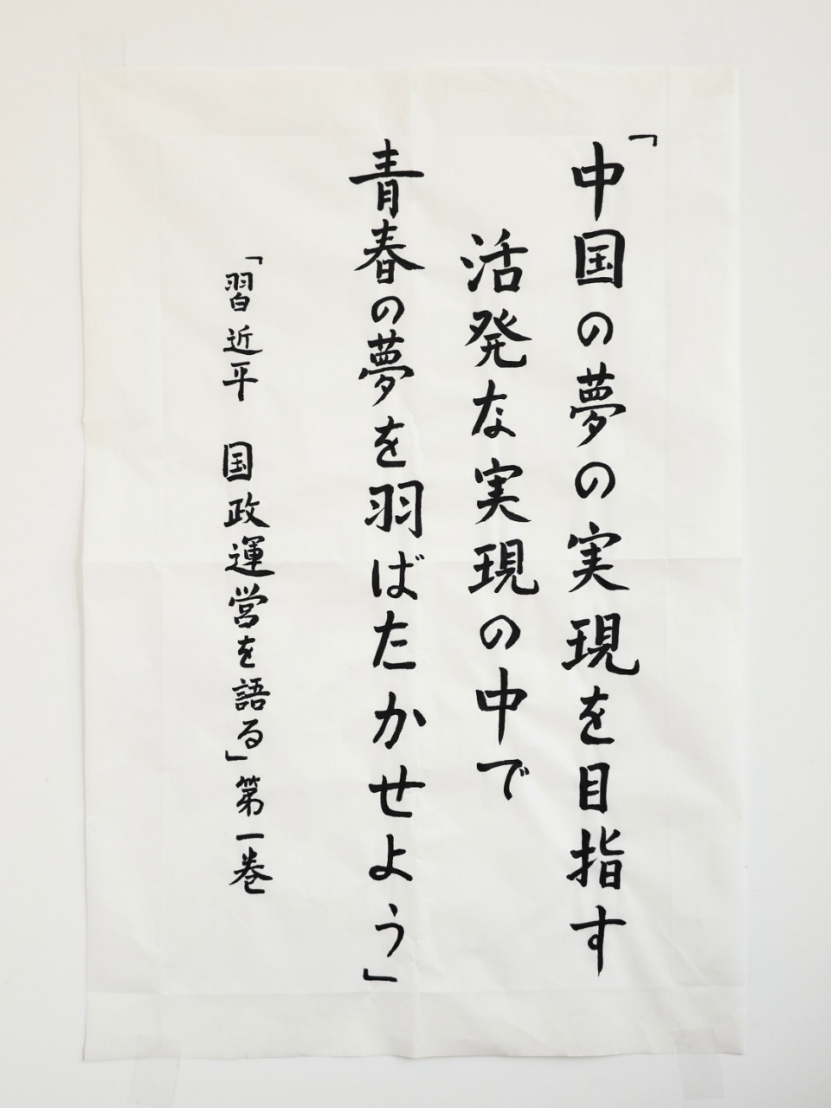 「中国の夢の実現を目指す
活発な実現の中で
青春の夢を羽ばたかせよう」
「習近平　国政運営を語る」第一巻